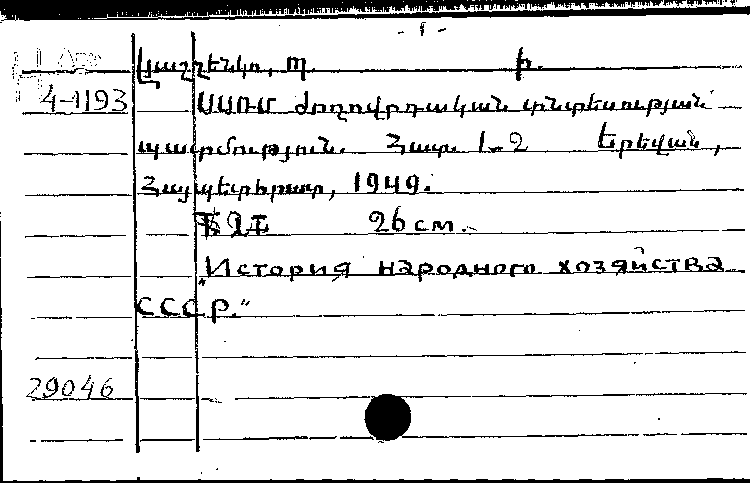 - 1 -
Լյաշչենկո, Պ. Ի.
4-1193 ՍՍՌՄ ժողովրդական տնտեսության
պատմություն. Հատ. 1-2 Երեվան,
Հայպետհրատ, 1949.
26 см.
"История народного хозяйства
СССР."
29046